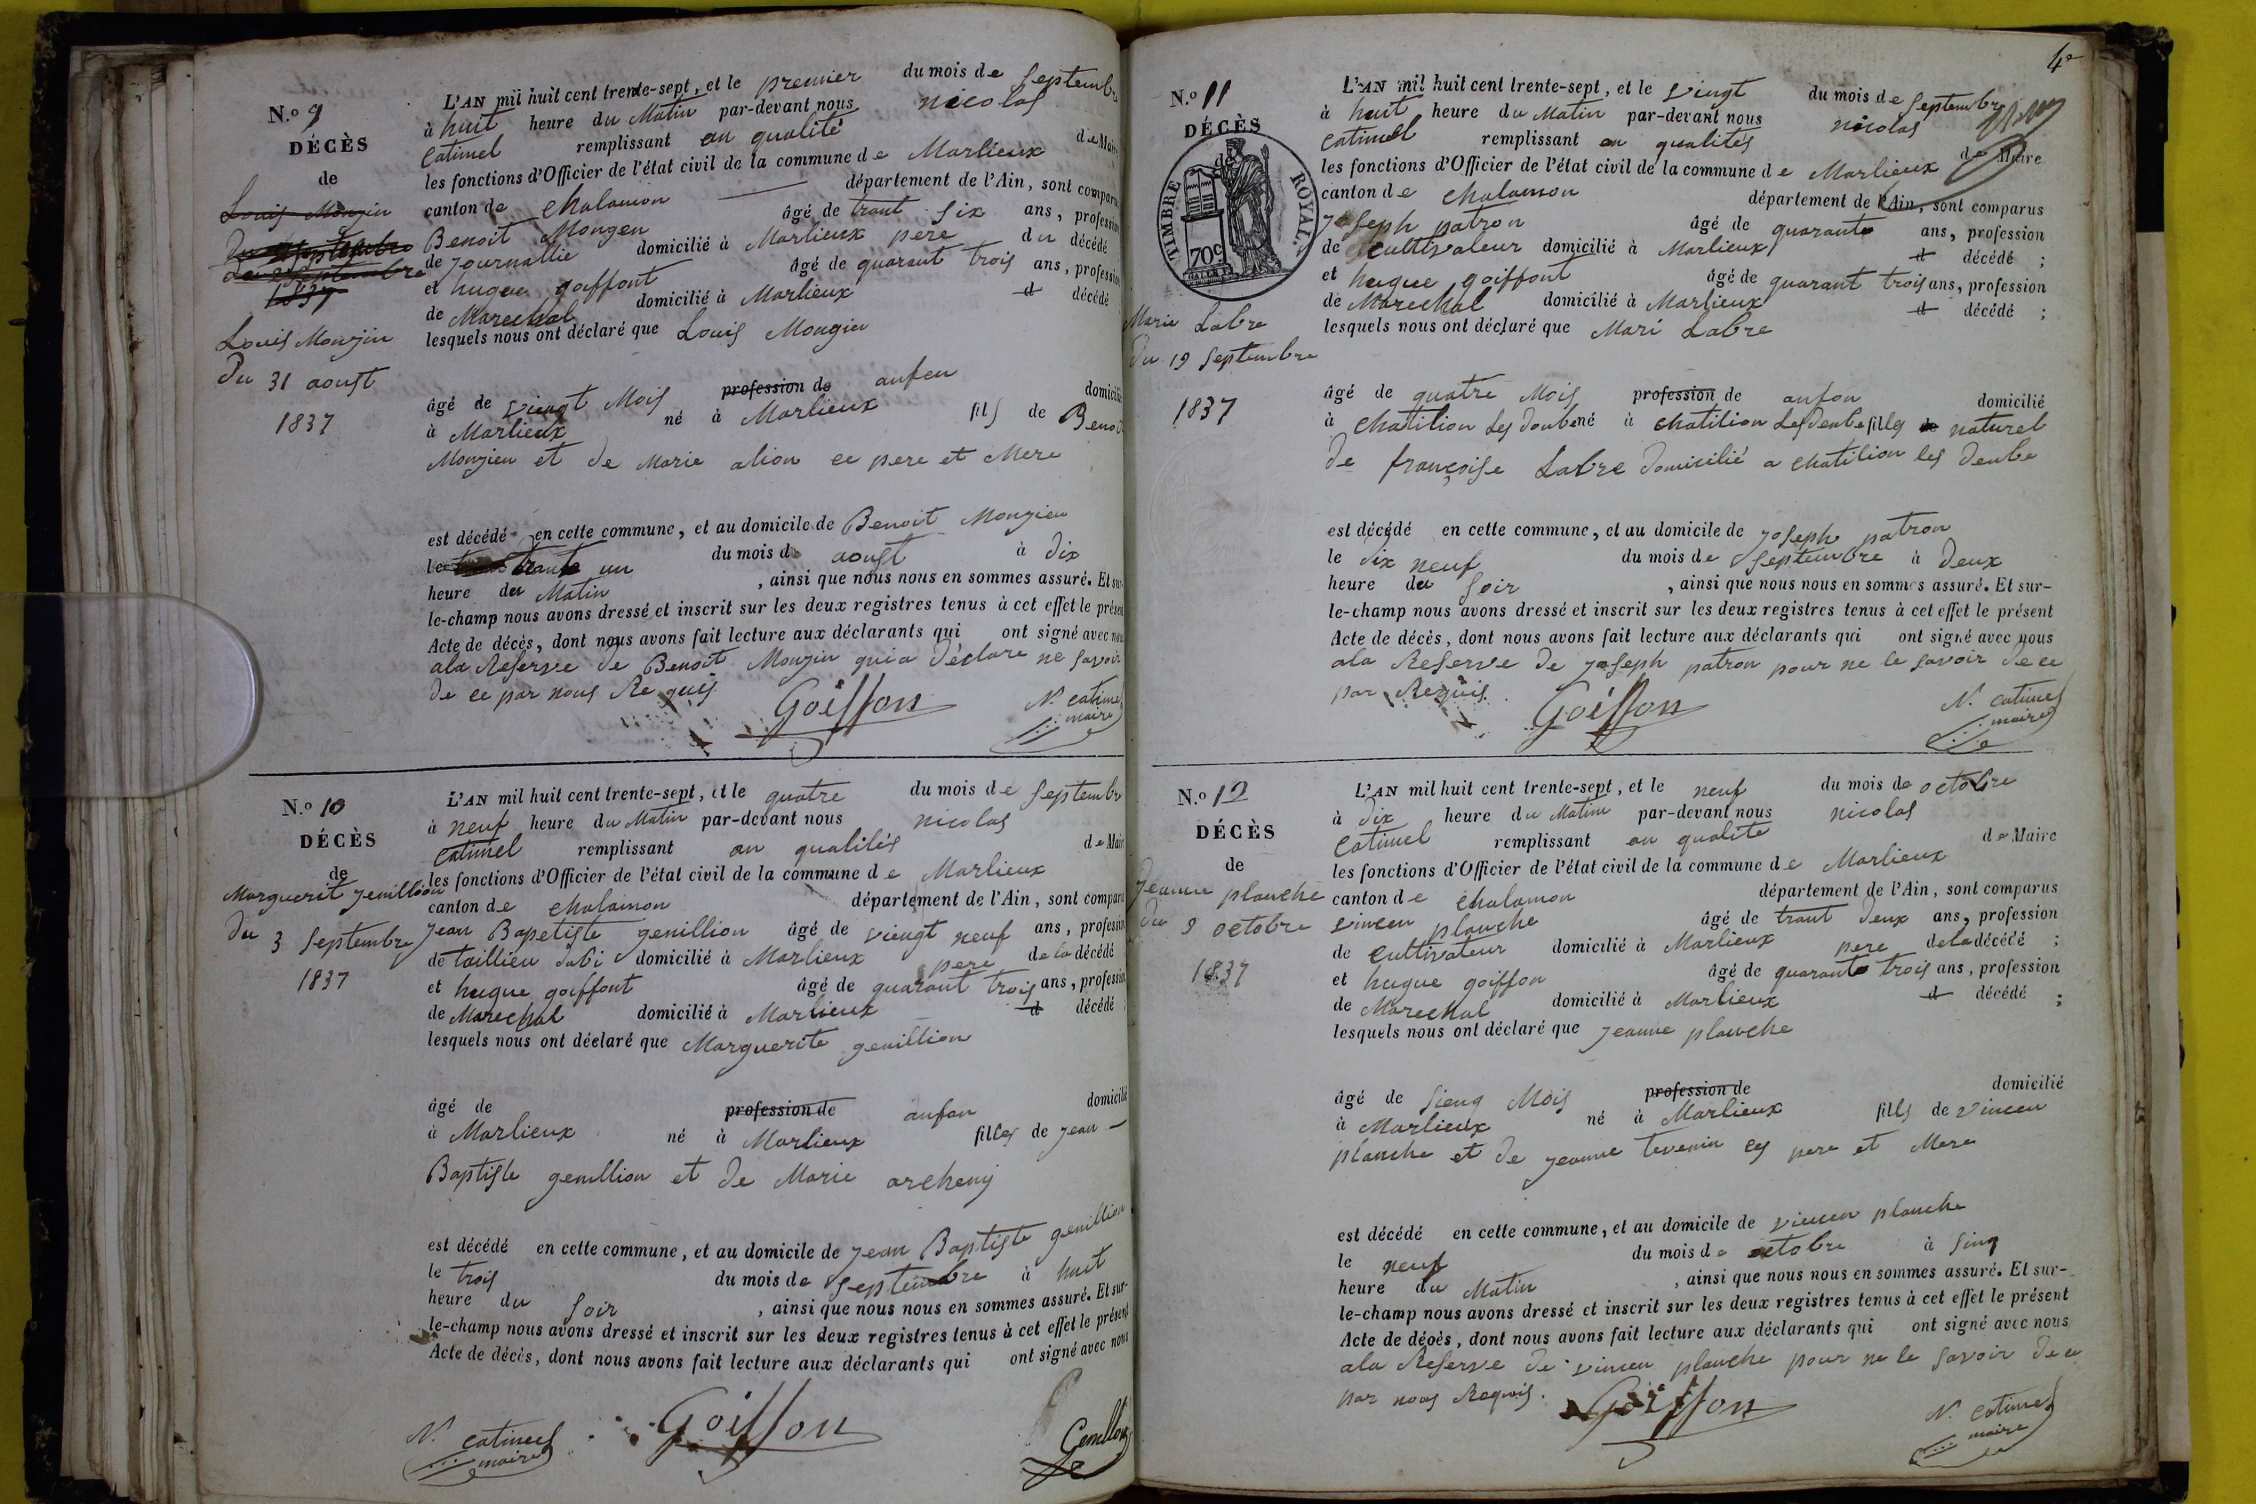 N.º 9
DÉCÈS
de
Louis Monzin
Du 2 Septembre
1837
Louis Monzin
Du 31 aoust
1837
L'AN mil huit cent trente-sept, et le premier du mois de septembre
à huit heure du Matin par-devant nous nicolas
Catimel remplissant an qualité de Maire
les fonctions d'Officier de l'état civil de la commune de Marlieux
canton de chalamon département de l'Ain, sont comparus
Benoit Mongen âgé de trant six ans, profession
de journallie domicilié à Marlieux pere du décédé
et hugue goiffont âgé de quarant trois ans, profession
de Marechal domicilié à Marlieux d décédé
lesquels nous ont déclaré que Louis Mongin
âgé de viengt Mois profession de anfen domicilié
à Marlieux né à Marlieux fils de Benoit
Monzieu et de Marie alion ce pere et Mere
est décédé en cette commune, et au domicile de Benoit Monzieu
le trante un du mois de aoust à dix
heure du Matin , ainsi que nous nous en sommes assuré. Et sur-
le-champ nous avons dressé et inscrit sur les deux registres tenus à cet effet le présent
Acte de décès, dont nous avons fait lecture aux déclarants qui ont signé avec nous
ala Reserve de Benoit Monzin qui a déclare ne savoir
de ce par nous Requis
Goiffon
N. catimel
maire
N.º 10
DÉCÈS
de
Marguerit Jenillion
du 3 Septembre
1837
L'AN mil huit cent trente-sept, et le quatre du mois de Septembre
à neuf heure du Matin par-devant nous nicolas
Catimel remplissant an qualités de Maire
les fonctions d'Officier de l'état civil de la commune de Marlieux
canton de chalamon département de l'Ain, sont comparus
Jean Bapetiste genillion âgé de viengt neuf ans, profession
de taillieu dabi domicilié à Marlieux pere de la décédé
et hugue goiffont âgé de quarant trois ans, profession
de Marechal domicilié à Marlieux d décédé
lesquels nous ont déclaré que Marguerite genillion
âgé de profession de anfan domicilié
à Marlieux né à Marlieux filles de Jean
Baptiste genillion et de Marie archeny
est décédé en cette commune, et au domicile de Jean Baptiste genillion
le trois du mois de Septembre à huit
heure du Soir , ainsi que nous nous en sommes assuré. Et sur-
le-champ nous avons dressé et inscrit sur les deux registres tenus à cet effet le présent
Acte de décès, dont nous avons fait lecture aux déclarants qui ont signé avec nous
N. catimel
maire
Goiffon
Genillon
4e
N.º 11
DÉCÈS
de
TIMBRE ROYAL.
70c
Marie Labre
Du 19 Septembre
1837
L'AN mil huit cent trente-sept, et le vingt du mois de Septembre
à huit heure du Matin par-devant nous nicolas
Catimel remplissant an qualités de Maire
les fonctions d'Officier de l'état civil de la commune de Marlieux
canton de chalamon département de l'Ain, sont comparus
Joseph patron âgé de quarante ans, profession
de Cultivateur domicilié à Marlieux d décédé ;
et hugue goiffont âgé de quarant trois ans, profession
de Marechal domicilié à Marlieux d décédé ;
lesquels nous ont déclaré que Mari Labre
âgé de quatre Mois profession de anfon domicilié
à chatilion Les Doube né à chatilion Les Deube filles de naturel
De françoise Labre Domicilié a chatilion les Deube
est décédé en cette commune, et au domicile de Joseph patron
le dix neuf du mois de Septembre à Deux
heure du Soir , ainsi que nous nous en sommes assuré. Et sur-
le-champ nous avons dressé et inscrit sur les deux registres tenus à cet effet le présent
Acte de décès, dont nous avons fait lecture aux déclarants qui ont signé avec nous
ala Reserve de Joseph patron pour ne le savoir de ce
par Requis.
Goiffon
N. catimel
maire
N.º 12
DÉCÈS
de
Jeanne planche
du 9 octobre
1837
L'AN mil huit cent trente-sept, et le neuf du mois de octobre
à dix heure du Matin par-devant nous nicolas
Catimel remplissant an qualité de Maire
les fonctions d'Officier de l'état civil de la commune de Marlieux
canton de chalamon département de l'Ain, sont comparus
vincen planche âgé de trant Deux ans, profession
de Cultivateur domicilié à Marlieux pere de la décédé ;
et hugue goiffon âgé de quarante trois ans, profession
de Marechal domicilié à Marlieux d décédé ;
lesquels nous ont déclaré que Jeanne planche
âgé de sienq Mois profession de domicilié
à Marlieux né à Marlieux fills de vincen
planche et de jeanne tevenin ces pere et Mere
est décédé en cette commune, et au domicile de vincen planche
le neuf du mois de octobre à sinq
heure du Matin , ainsi que nous nous en sommes assuré. Et sur-
le-champ nous avons dressé et inscrit sur les deux registres tenus à cet effet le présent
Acte de décès, dont nous avons fait lecture aux déclarants qui ont signé avec nous
ala Reserve de vincen planche pour ne le savoir de ce
par nous Requis.
Goiffon
N. catimel
maire